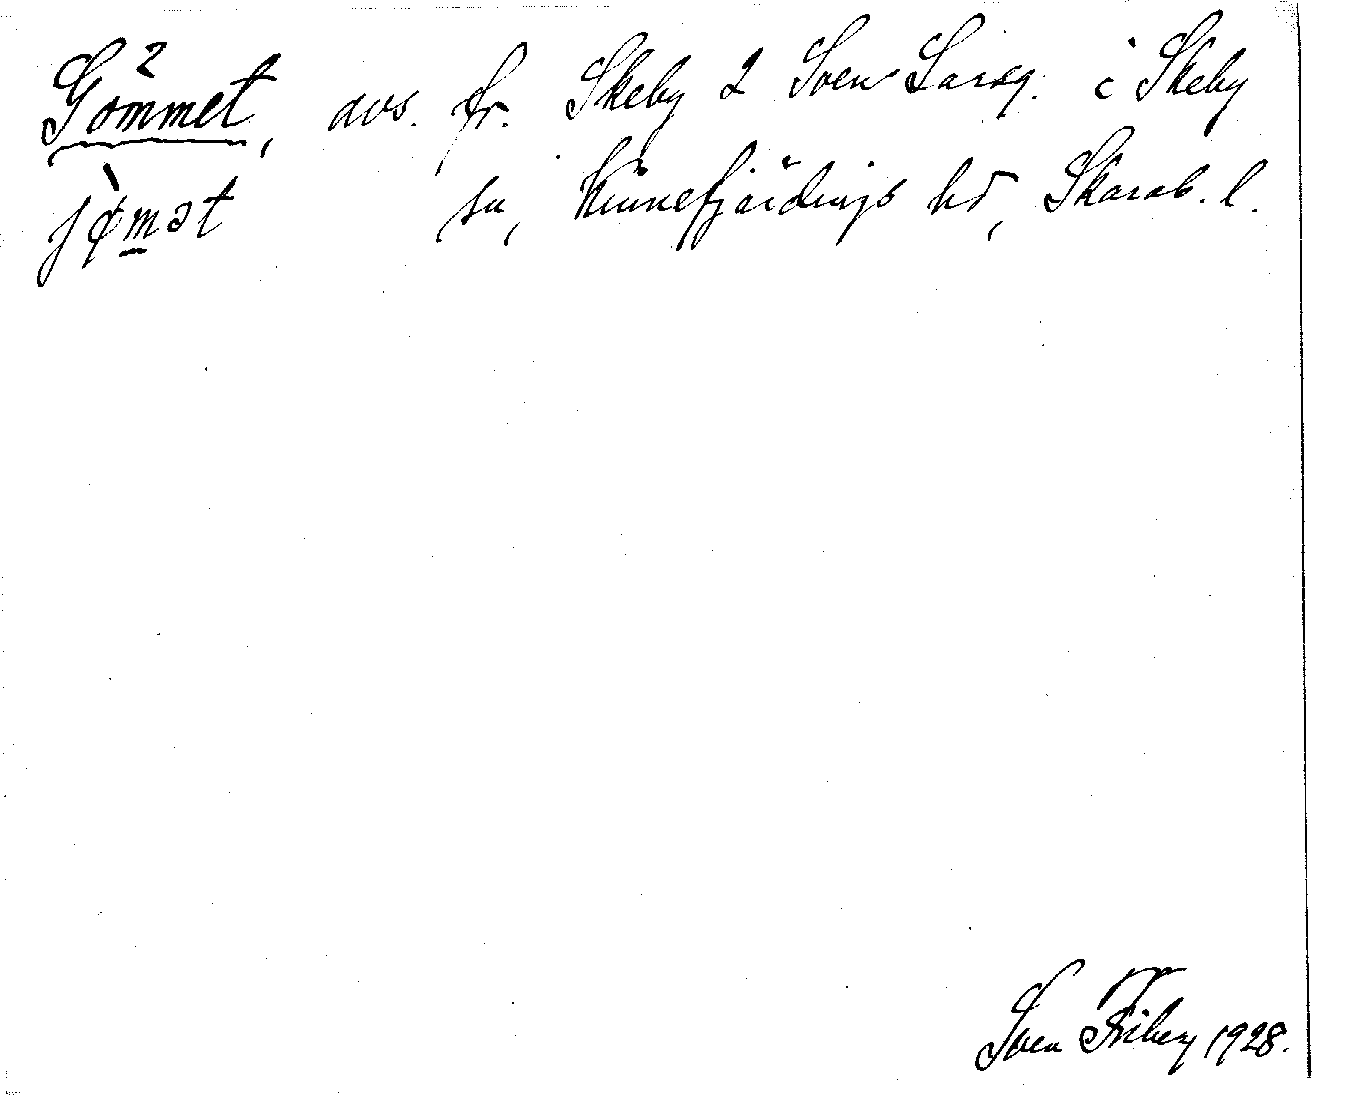 Gömmet, avs. fr. Skeby 2 Sven Larsg. i Skeby
jø̀mət sn, Kinnefjärdings hd, Skarab. l.
Sven Friberg 1928.